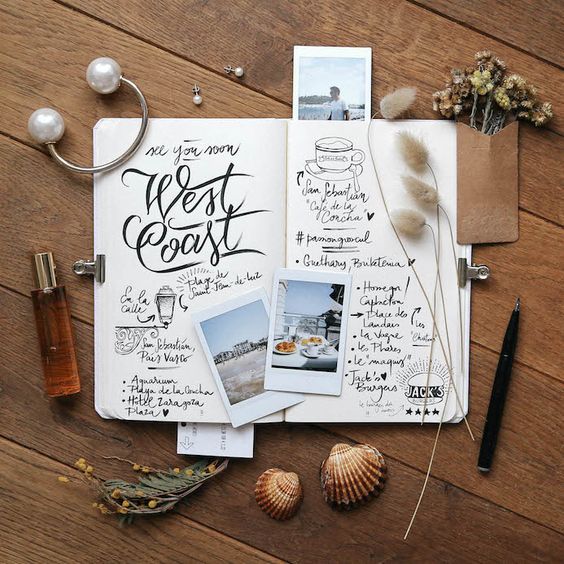 see you soon
West
Coast
Plage de
Saint-Jean-de-Luz
En la
calle
San Sebastian,
País Vasco
• Aquarium
• Playa de la Concha
• Hôtel Zaragoza
Plaza
San Sebastian
"Café de la
Concha"
#passionogroovul
• Guethary, Briketenia
• Hossegor /
Capbreton
Place des
Landais
• La Vague
• les Pheres
• le "maquis"
• Jack's
Burgers
JACK'S